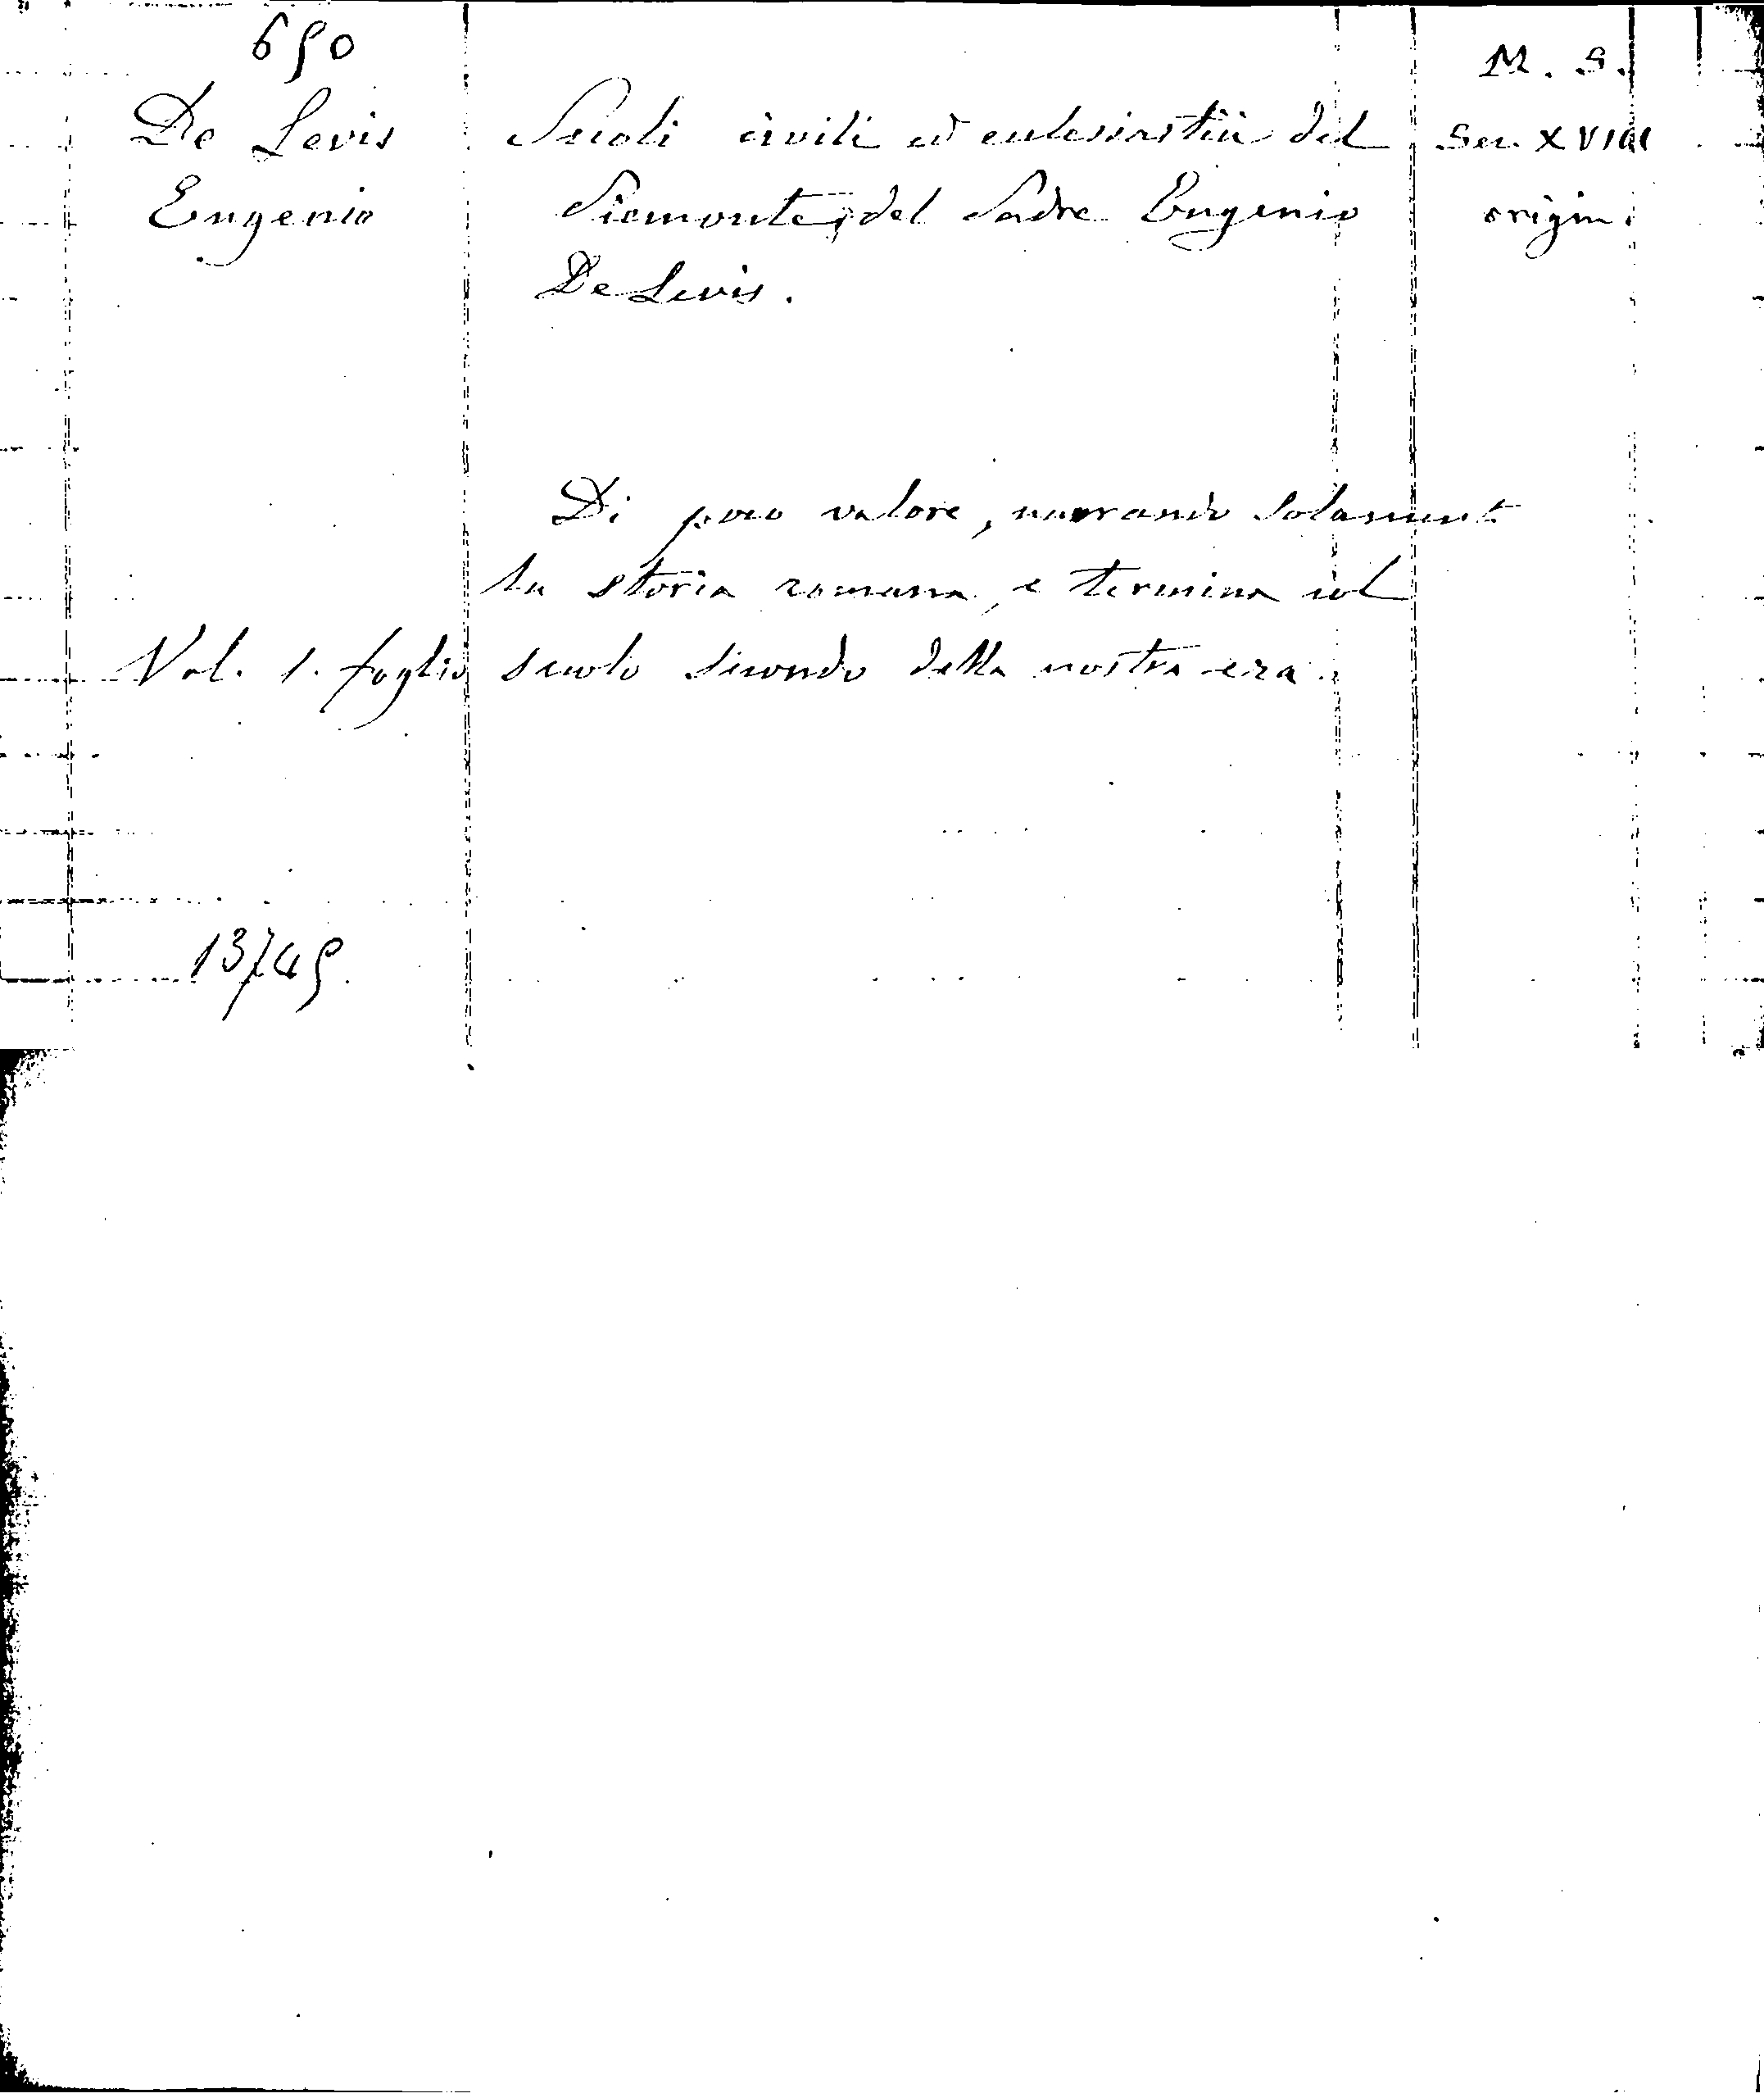 650
M. S.
De Levis Secoli civili ed ecclesiastici del Sec. XVIII
Eugenio Piemonte, del Padre Eugenio origin.
De Levis.
Di poco valore, narrando solament.
la storia romana, e termina col
Vol. 1. foglio secolo secondo della nostra era.
13745.